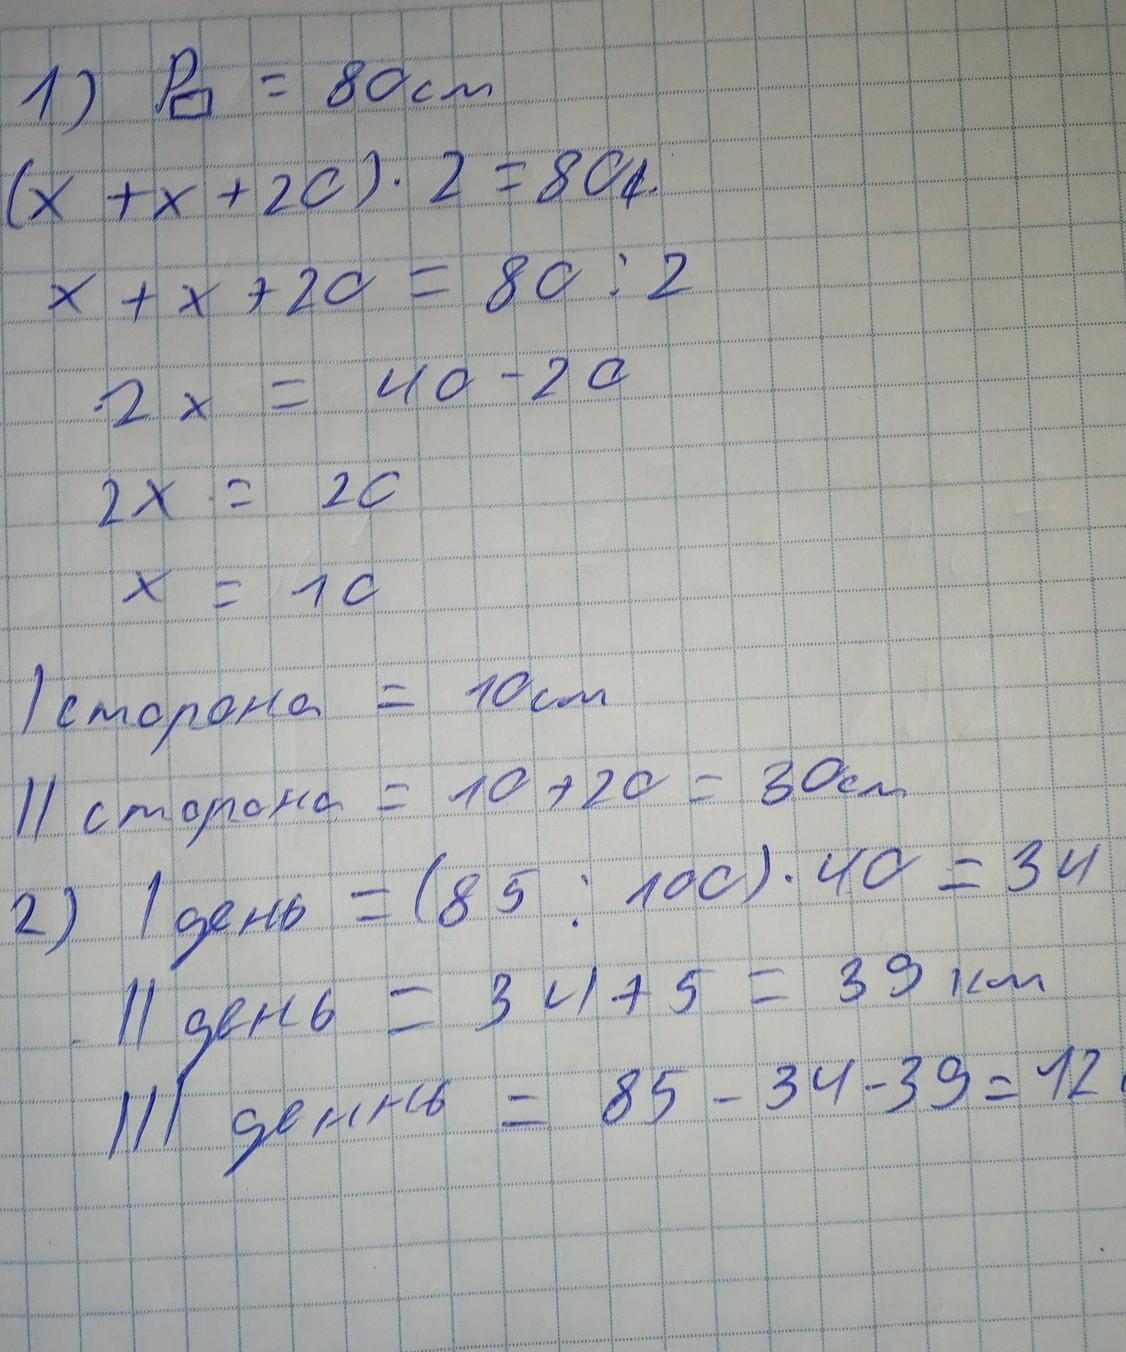 1) P□ = 80см
(x + x + 20) · 2 = 80
x + x + 20 = 80 : 2
2x = 40 - 20
2x = 20
x = 10
I сторона = 10см
II сторона = 10 + 20 = 30см
2) I день = (85 : 100) · 40 = 34
II день = 34 + 5 = 39 км
III деннь = 85 - 34 - 39 = 12